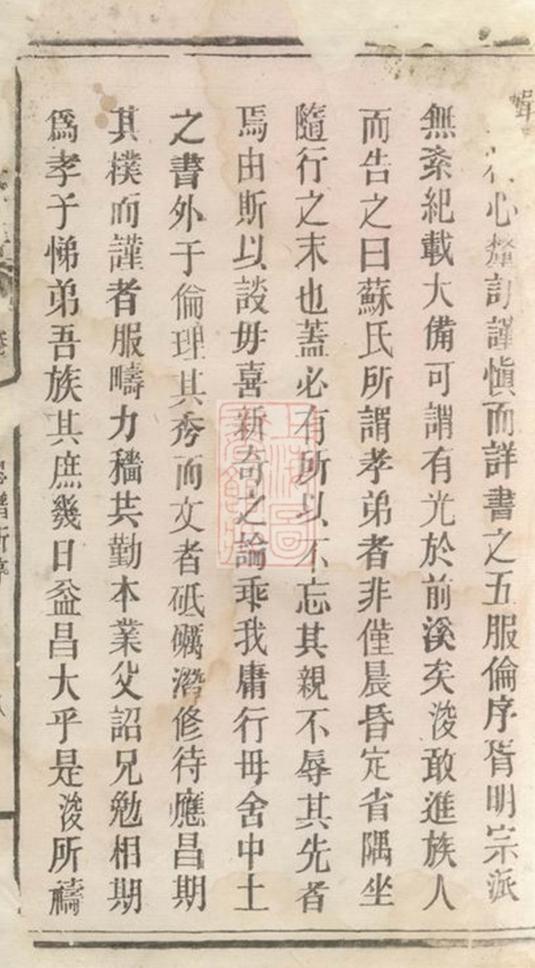 輯
心釐訂謹慎而詳書之五服倫序胥明宗派
無紊紀載大備可謂有光於前溪矣浚敢進族人
而告之曰蘇氏所謂孝弟者非僅晨昏定省隅坐
隨行之末也蓋必有所以不忘其親不辱其先者
焉由斯以談毋喜新奇之論乖我庸行毋舍中土
之書外于倫理其秀而文者砥礪潛修待應昌期
其樸而謹者服疇力穡共勤本業父詔兄勉相期
爲孝子悌弟吾族其庶幾日益昌大乎是浚所禱
上海圖書館藏